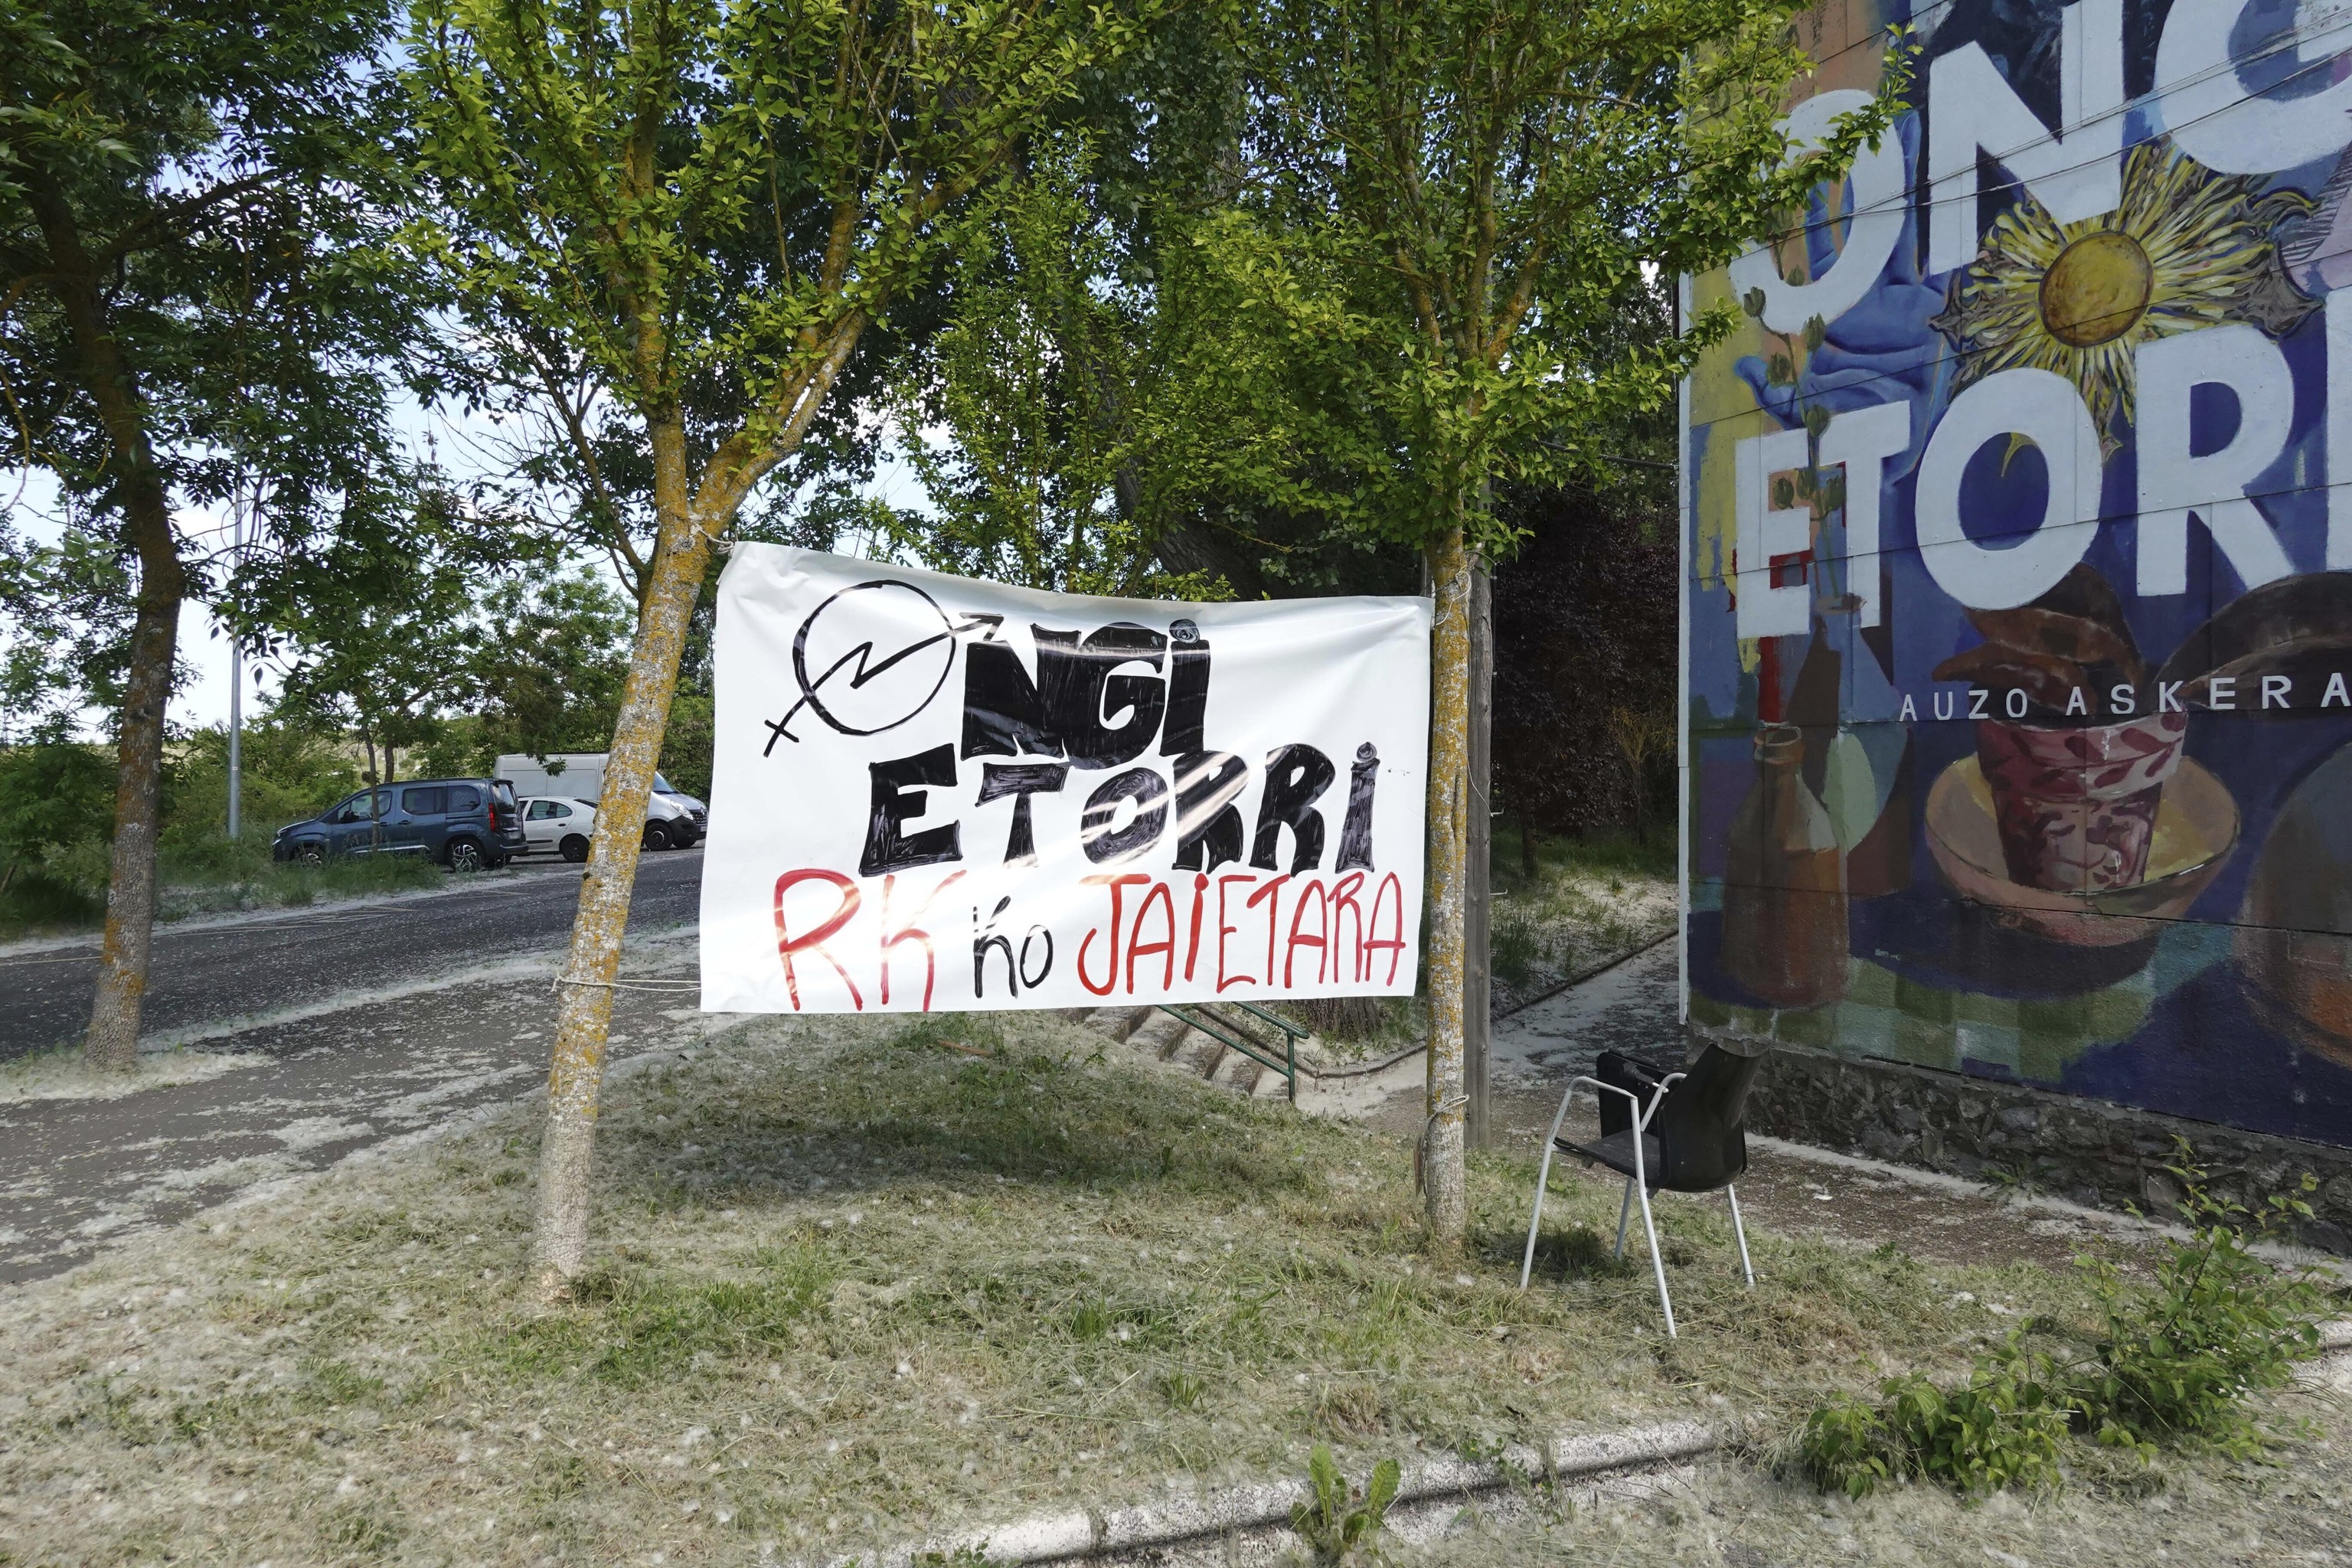 ONGI
ETORRI
RK KO JAIETARA
ONG
ETORR
AUZO ASKERA